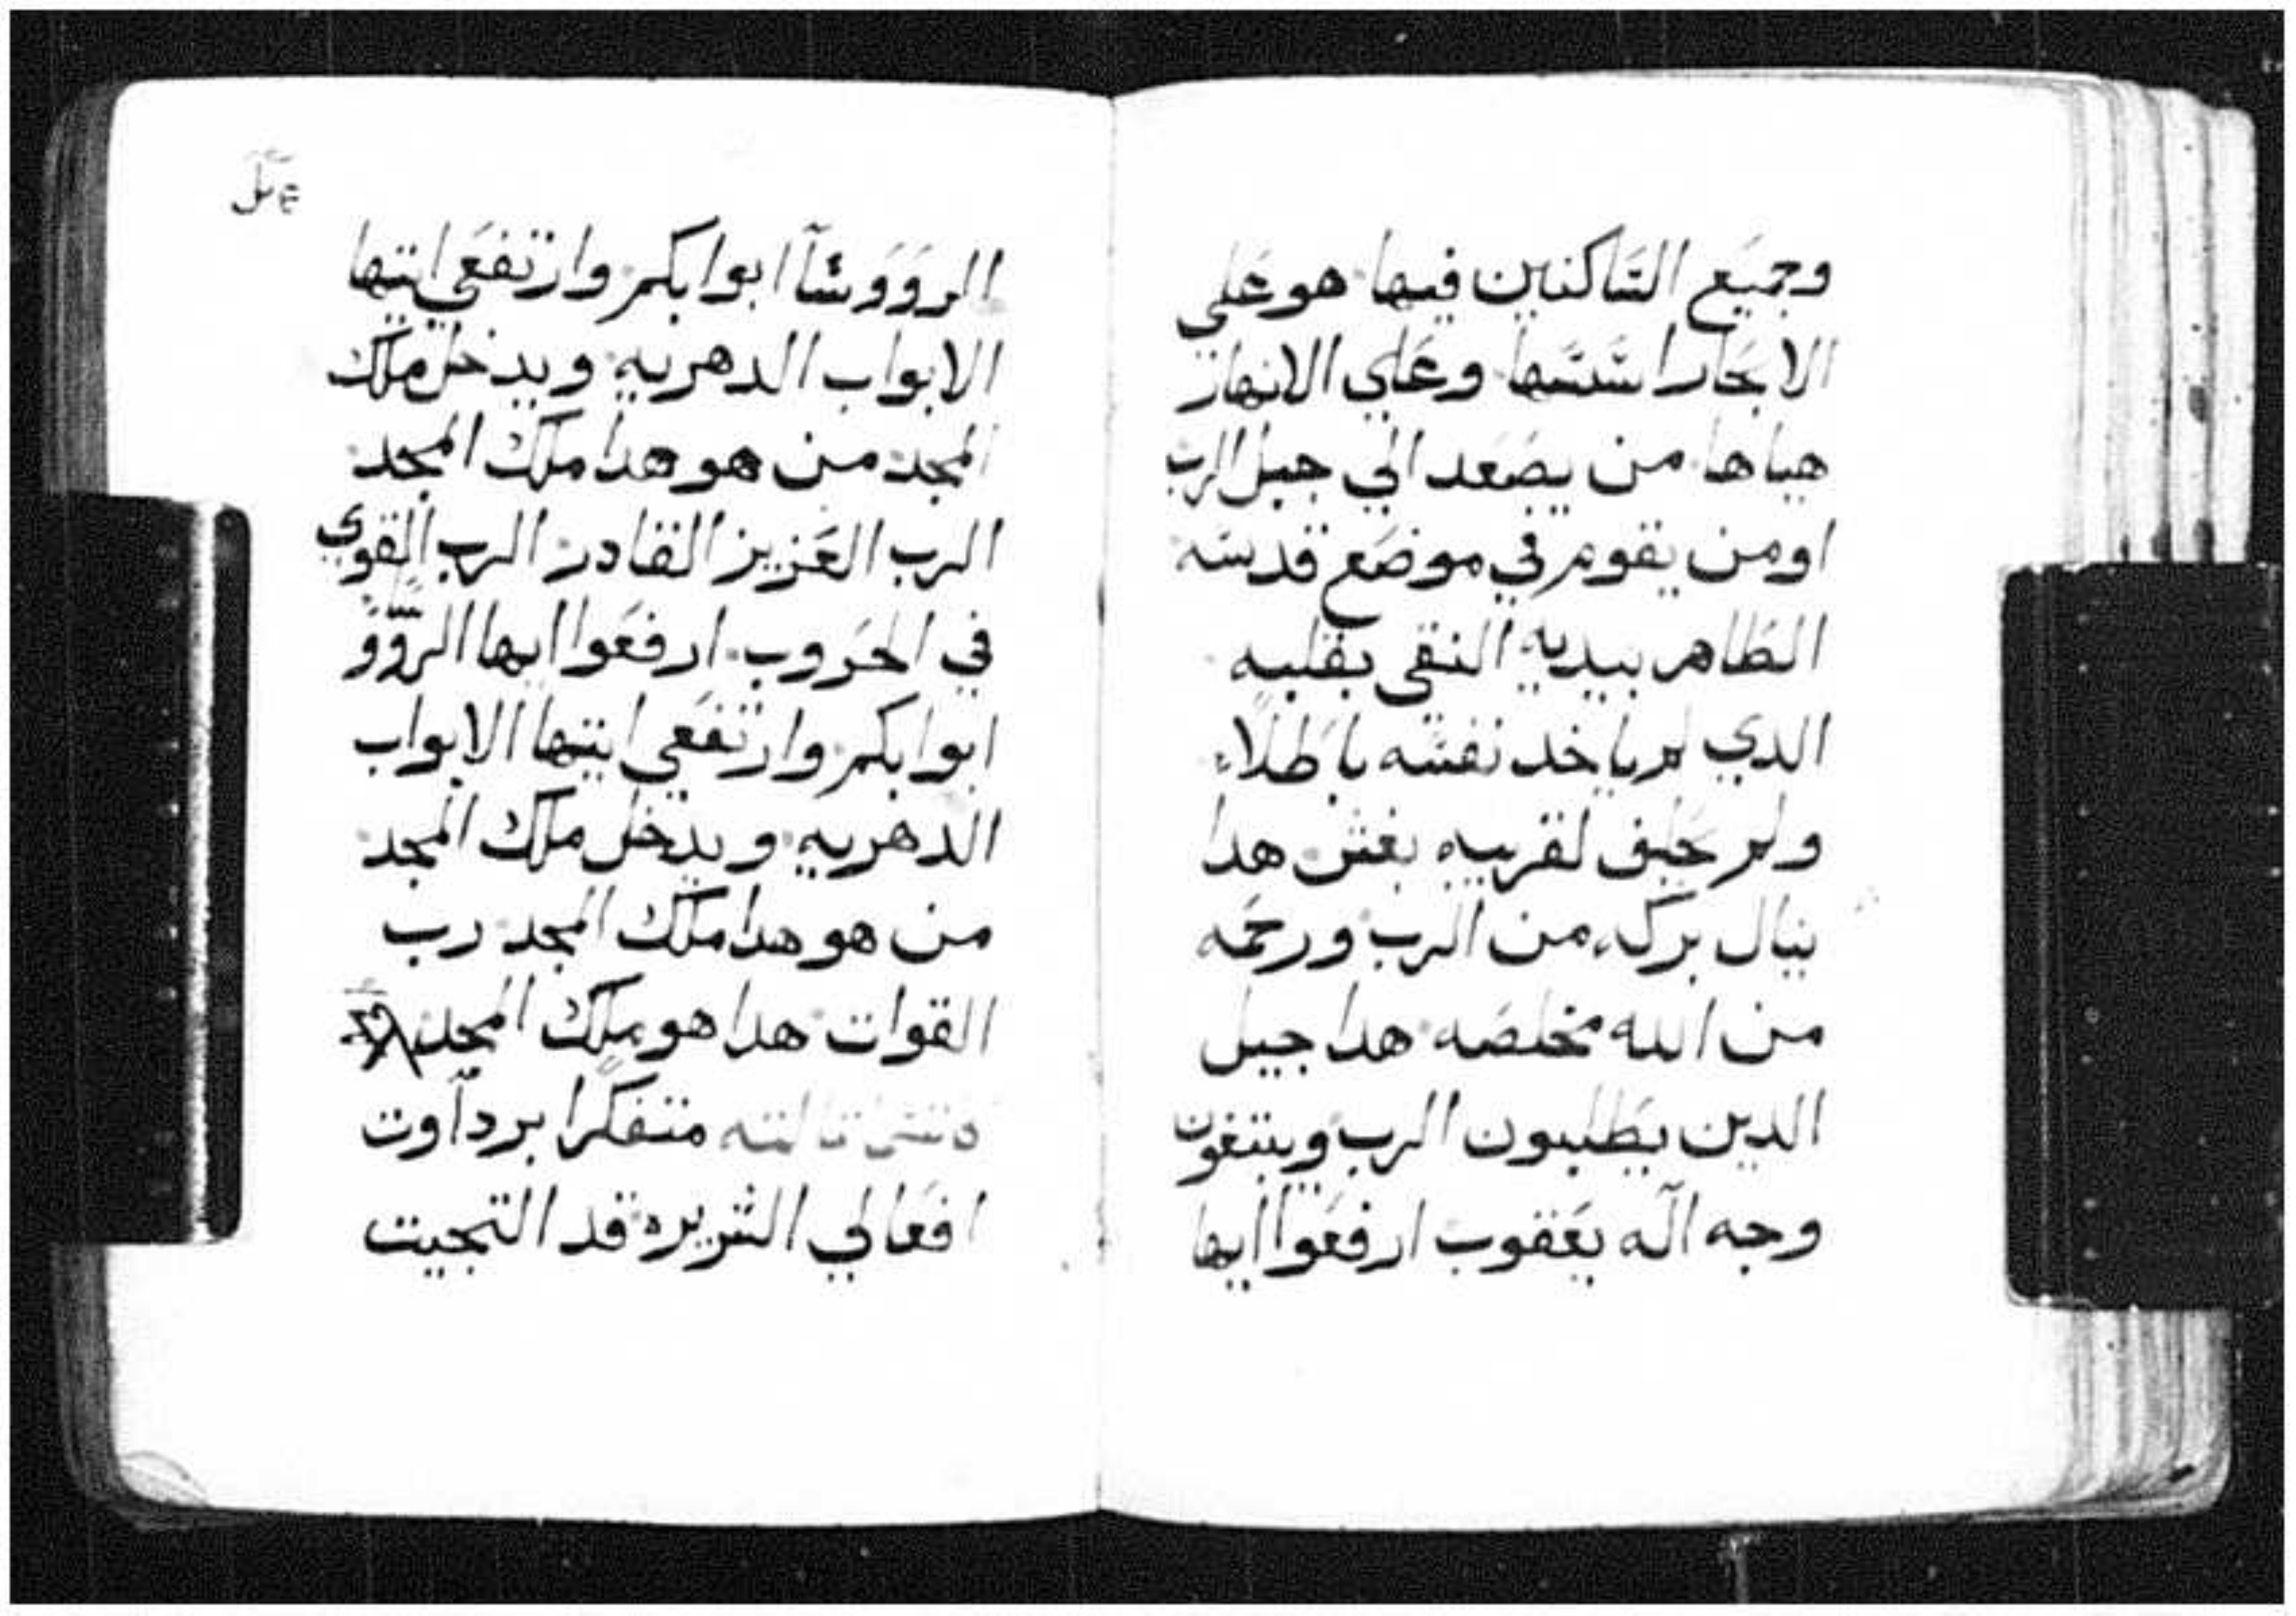 وجميع الساكنين فيها هو علي
الابحار اسسها وعلي الانهار
هياها من يصعد الي جبل الرب
او من يقوم في موضع قدسه
الطاهر بيديه النقي بقلبه
الدي لم ياخد نفسه باطلاء
ولم يحلف لقريبه بغش هدا
ينال بركه من الرب ورحمه
من الله مخلصه هدا جيل
الدين يطلبون الرب ويبتغون
وجه اله يعقوب ارفعوا ايها
الرووسا ابوابكم وارتفعي ايتها
الابواب الدهريه ويدخل ملك
المجد من هو هدا ملك المجد
الرب العزيز القادر الرب القوي
في الحروب ارفعوا ايها الروو
ابوابكم وارتفعي ايتها الابواب
الدهريه ويدخل ملك المجد
من هو هدا ملك المجد رب
القوات هدا هو ملك المجد
متفكرا برداوت
افعالي الشريره قد التجيت